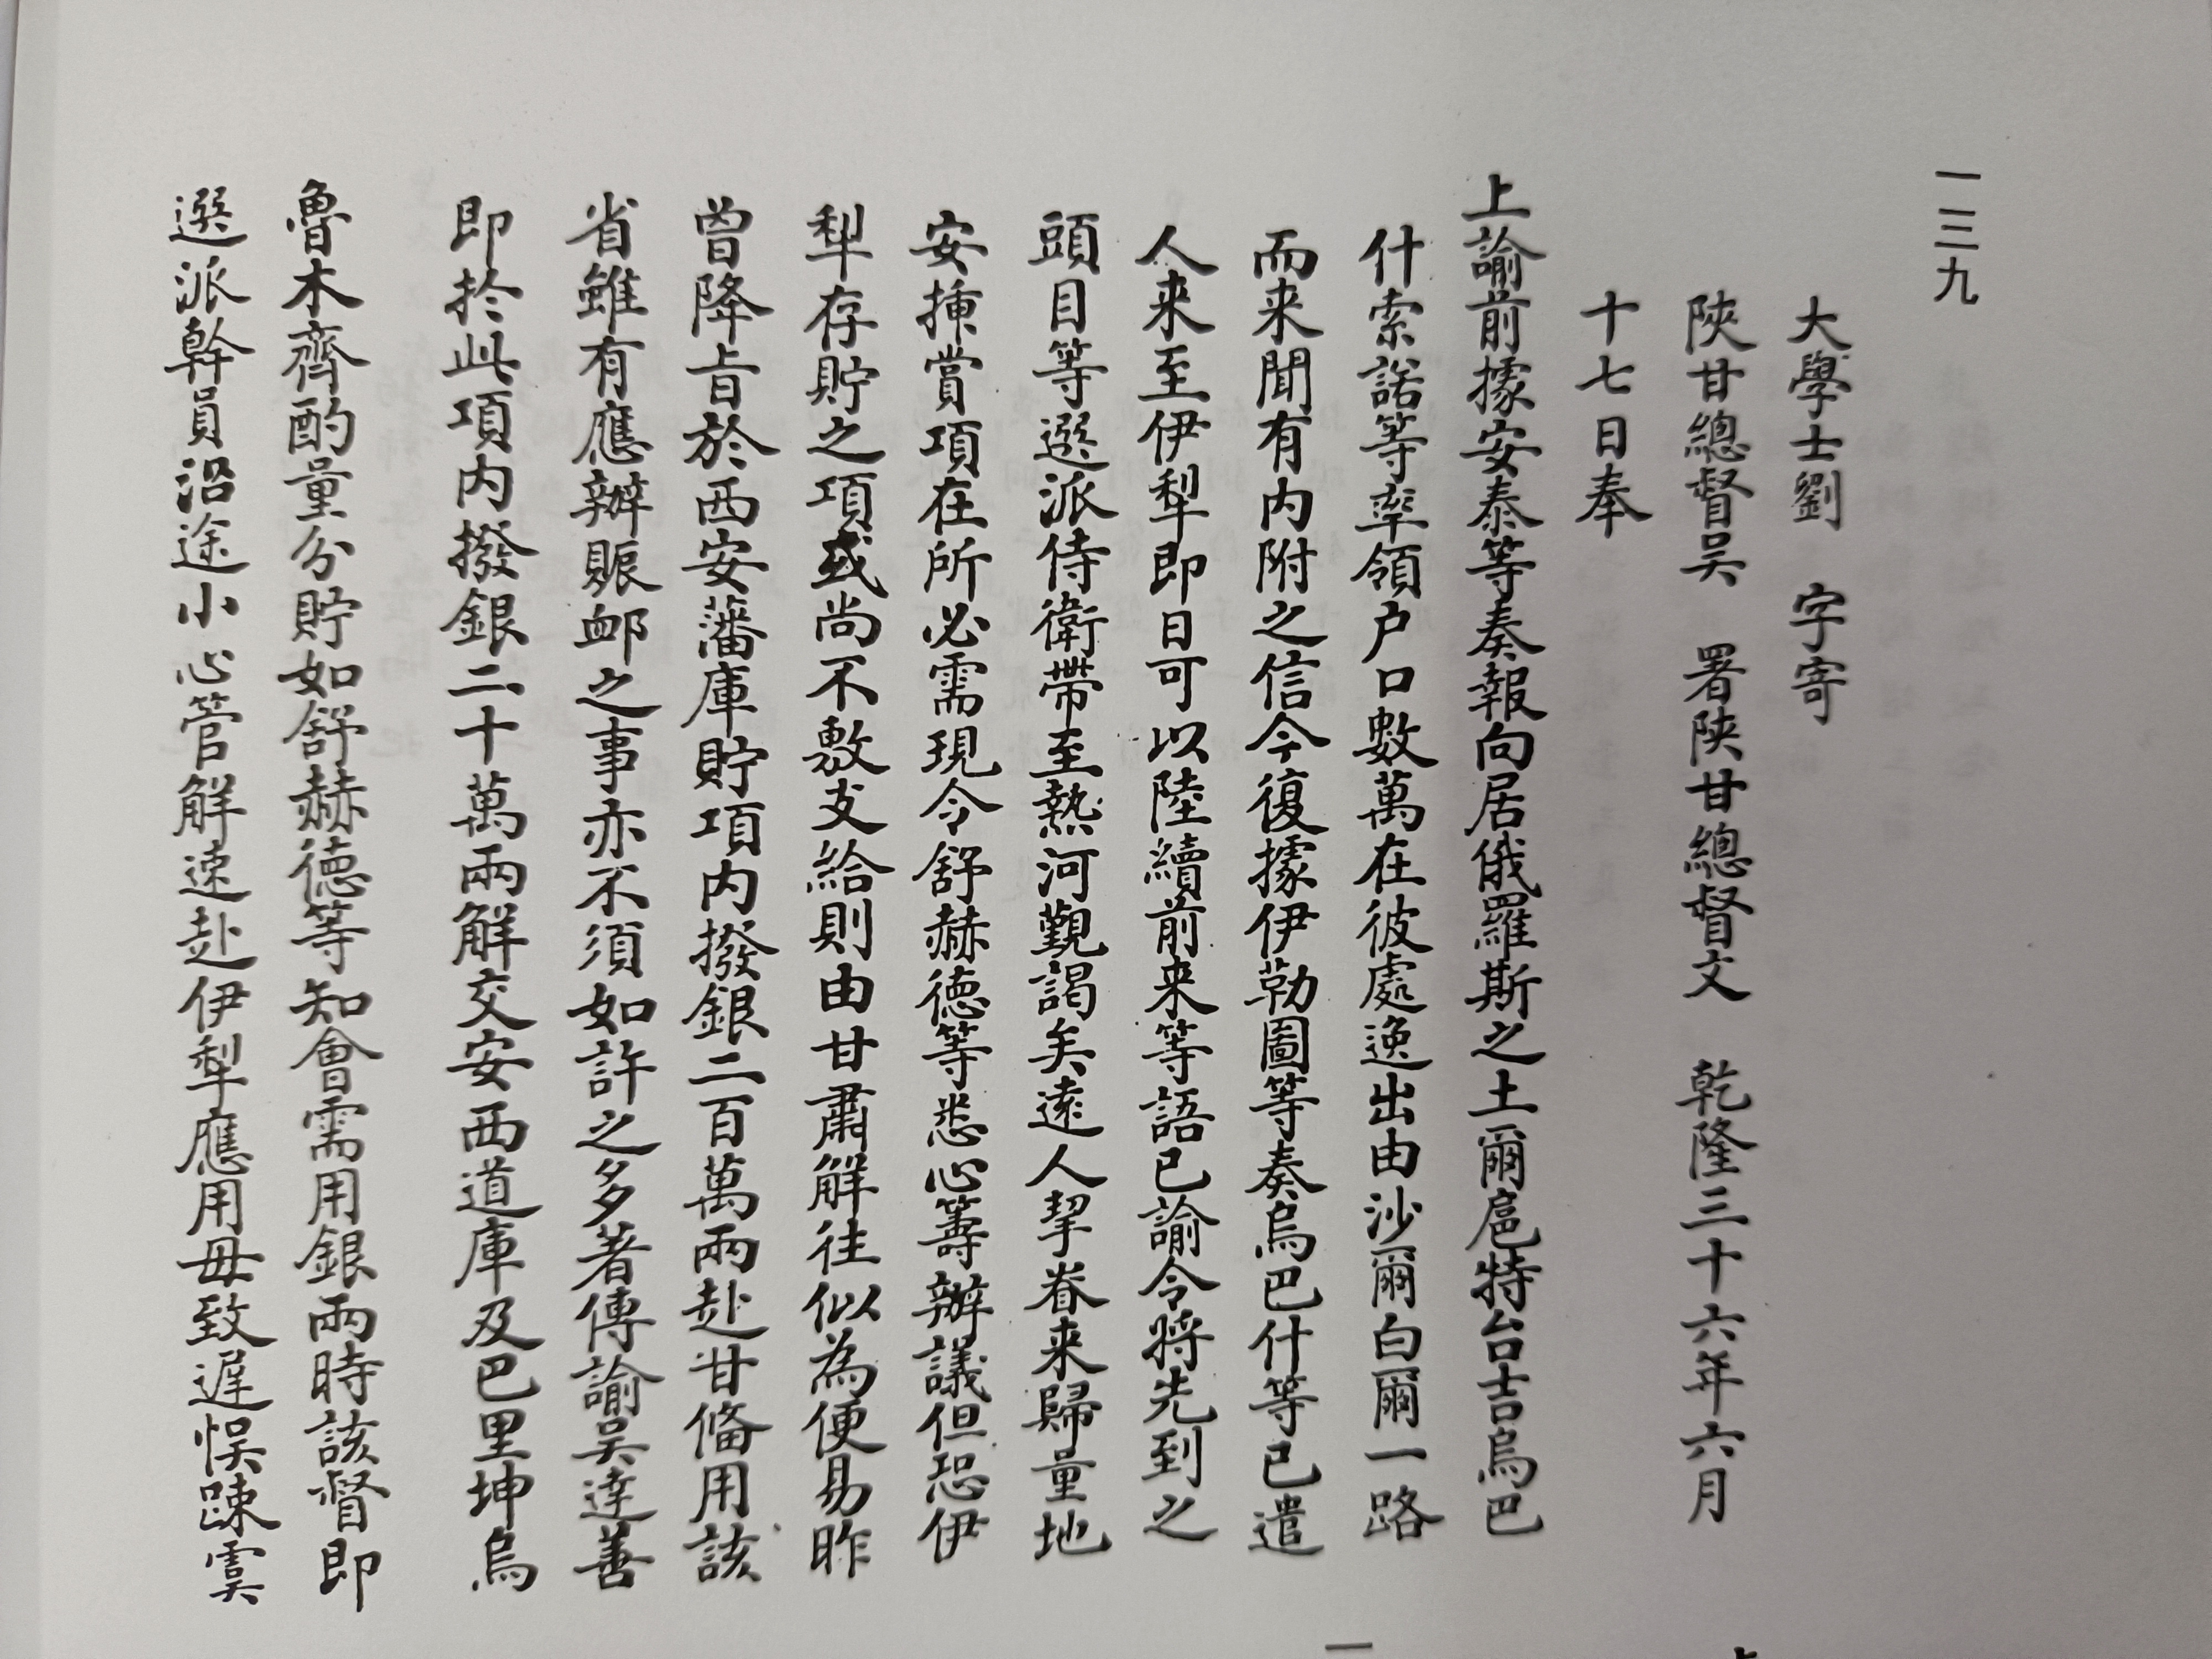 一三九
大學士劉　字寄
陝甘總督吴　署陝甘總督文　乾隆三十六年六月
十七日奉
上諭前據安泰等奏報向居俄羅斯之土爾扈特台吉烏巴
什索諾等率領户口數萬在彼處逸出由沙爾白爾一路
而来聞有内附之信今復據伊勒圖等奏烏巴什等已遣
人来至伊犁即日可以陸續前来等語已諭令将先到之
頭目等選派侍衛帶至熱河覲謁矣遠人挈眷来歸量地
安揷賞項在所必需現令舒赫德等悉心籌辦議但恐伊
犁存貯之項或尚不敷支給則由甘肅解往似為便易昨
曾降旨於西安藩庫貯項内撥銀二百萬兩赴甘俻用該
省雖有應辦賑䘏之事亦不須如許之多著傳諭吴達善
即於此項内撥銀二十萬兩解交安西道庫及巴里坤烏
魯木齊酌量分貯如舒赫德等知會需用銀兩時該督即
選派幹員沿途小心管解速赴伊犁應用毋致遲悞踈虞
一